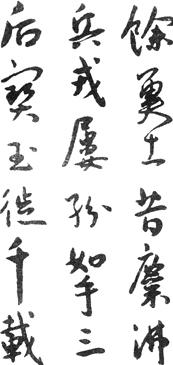 餘勇士昔糜沸
兵戎屢紛如手三
后寶玉徙千載